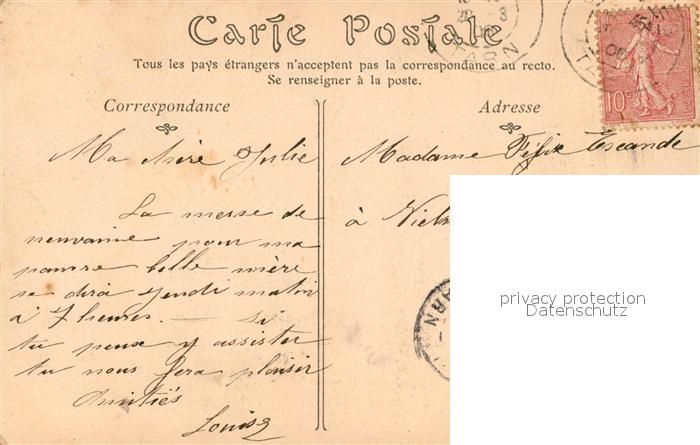 Carte Postale
Tous les pays étrangers n'acceptent pas la correspondance au recto.
Se renseigner à la poste.
Correspondance
Adresse
TARN
10c
Ma chère Julie
La messe de
neuvaine pour ma
pauvre belle mère
se dira jeudi matin
à 7 heures. — Si
tu peux y assister
tu nous fera plaisir
Amitiés
Louise
Madame Félix Escande
à
TARN
privacy protection
Datenschutz